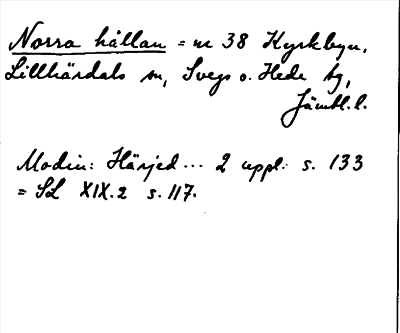 Norra hållan = nr 38 Kyrkbyn,
Lillhärdals sn, Svegs o. Hede tg,
Jämtl.l.
Modin: Härjed... 2 uppl. s. 133
= SL XIX.2 s. 117.